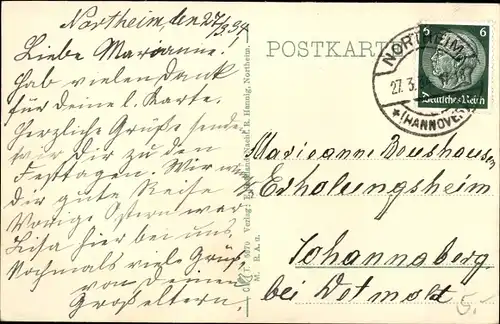 Northeim den 27/3.34
Liebe Marianne.
Hab vielen Dank
für Deine l. Karte.
Herzliche Grüße senden
wir Dir zu den
Festtagen. Wir
Dir gute Reise
Vorige Ostern war
Lisa hier bei uns.
Nochmals viele Grüße
von Deinen
Großeltern.
POSTKARTE
NORTHEIM
27.3.
* (HANNOVER)
6 6
Deutsches Reich
Marieanne
Erholungsheim
Johannaberg
bei Detmold
R. Hannig, Northeim.
M. R. A. G.
6.